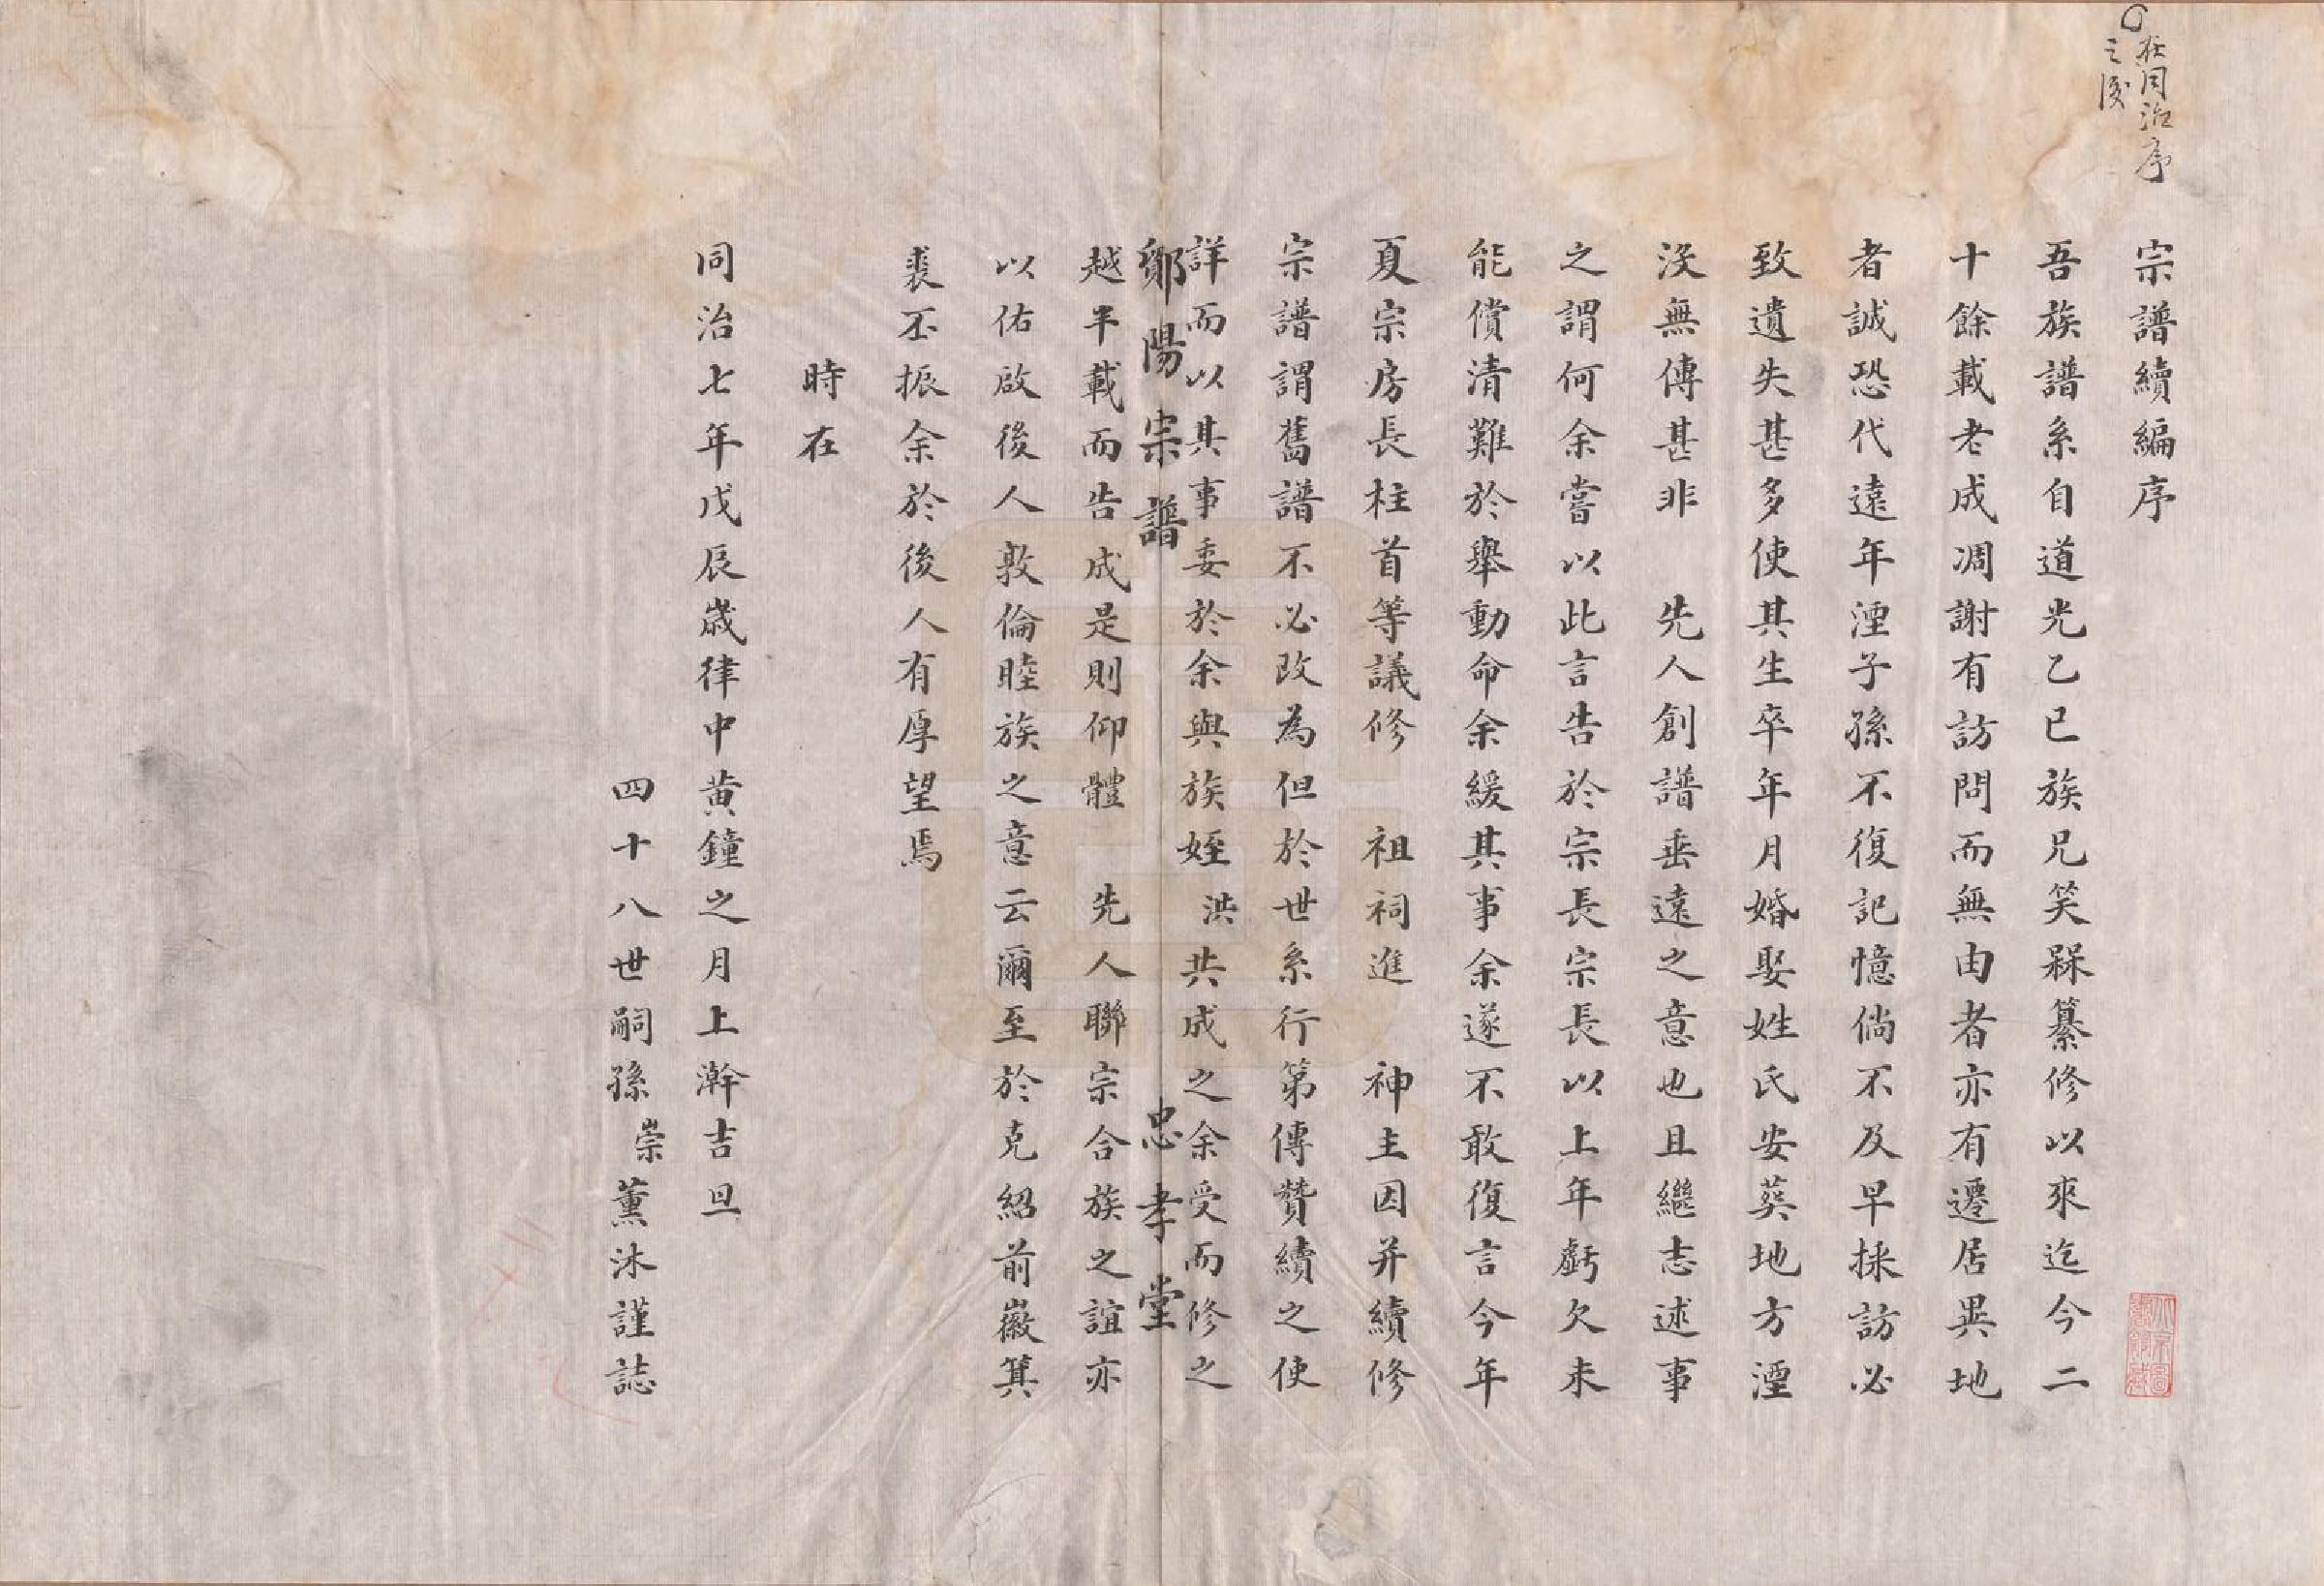 在同治序
之後
宗譜續編序
吾族譜系自道光乙巳族兄笑槑纂修以來迄今二
十餘載老成凋謝有訪問而無由者亦有遷居異地
者誠恐代遠年湮子孫不復記憶倘不及早採訪必
致遺失甚多使其生卒年月婚娶姓氏安葬地方湮
沒無傳甚非　先人創譜垂遠之意也且繼志述事
之謂何余嘗以此言告於宗長宗長以上年虧欠未
能償清難於舉動命余緩其事余遂不敢復言今年
夏宗房長柱首等議修　祖祠進　神主因并續修
宗譜謂舊譜不必改為但於世系行第傳贊續之使
詳而以其事委於余與族姪洪共成之余受而修之
鄭陽宗譜　忠孝堂
越半載而告成是則仰體　先人聯宗合族之誼亦
以佑啟後人敦倫睦族之意云爾至於克紹前徽箕
裘丕振余於後人有厚望焉
時在
同治七年戊辰歲律中黃鐘之月上澣吉旦
四十八世嗣孫崇薰沐謹誌